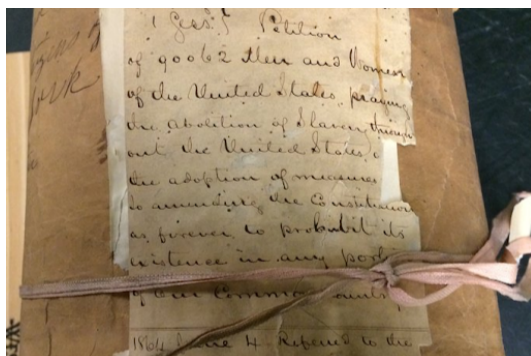 Petition
of 90062 Men and Women
of the United States, praying
the abolition of Slavery through
out the United States, &
the adoption of measures
so amending the Constitution
as forever to prohibit its
existence in any port
of our Common Country
1864 June 4 Referred to the